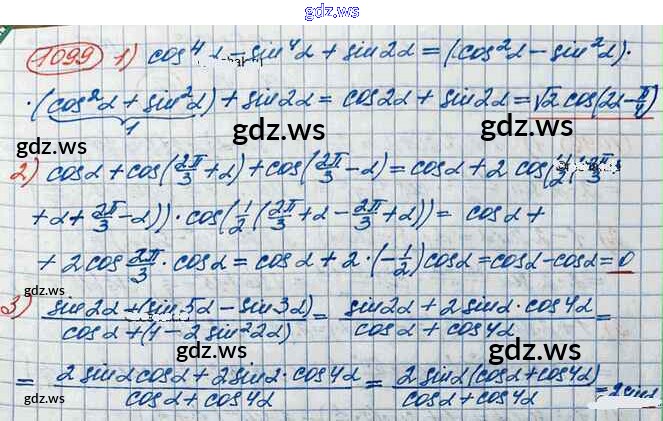 gdz.ws
1099 1) cos⁴α − sin⁴α + sin2α = (cos²α − sin²α)·
·(cos²α + sin²α) + sin2α = cos2α + sin2α = √2 cos(2α − π/4)
1
gdz.ws
gdz.ws
gdz.ws
2) cosα + cos(2π/3 + α) + cos(2π/3 − α) = cosα + 2 cos(1/2(2π/3
+ α + 2π/3 − α))·cos(1/2(2π/3 + α − 2π/3 + α)) = cosα +
gdz.ws
+ 2cos 2π/3 · cosα = cosα + 2·(−1/2)cosα = cosα − cosα = 0
gdz.ws
gdz.ws
3) (sin2α + (sin5α − sin3α))/(cosα + (1 − 2sin²2α)) = (sin2α + 2sinα·cos4α)/(cosα + cos4α) =
gdz.ws
gdz.ws
= (2sinαcosα + 2sinα·cos4α)/(cosα + cos4α) = (2sinα(cosα + cos4α))/(cosα + cos4α) = 2sinα
gdz.ws
gdz.ws